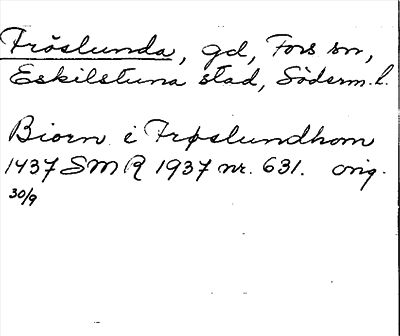 Fröslunda, gd, Fors sn,
Eskilstuna stad, Söderm. l.
Biorn i Frøslundhom
1437 SMR 1937 nr. 631. orig.
30/9